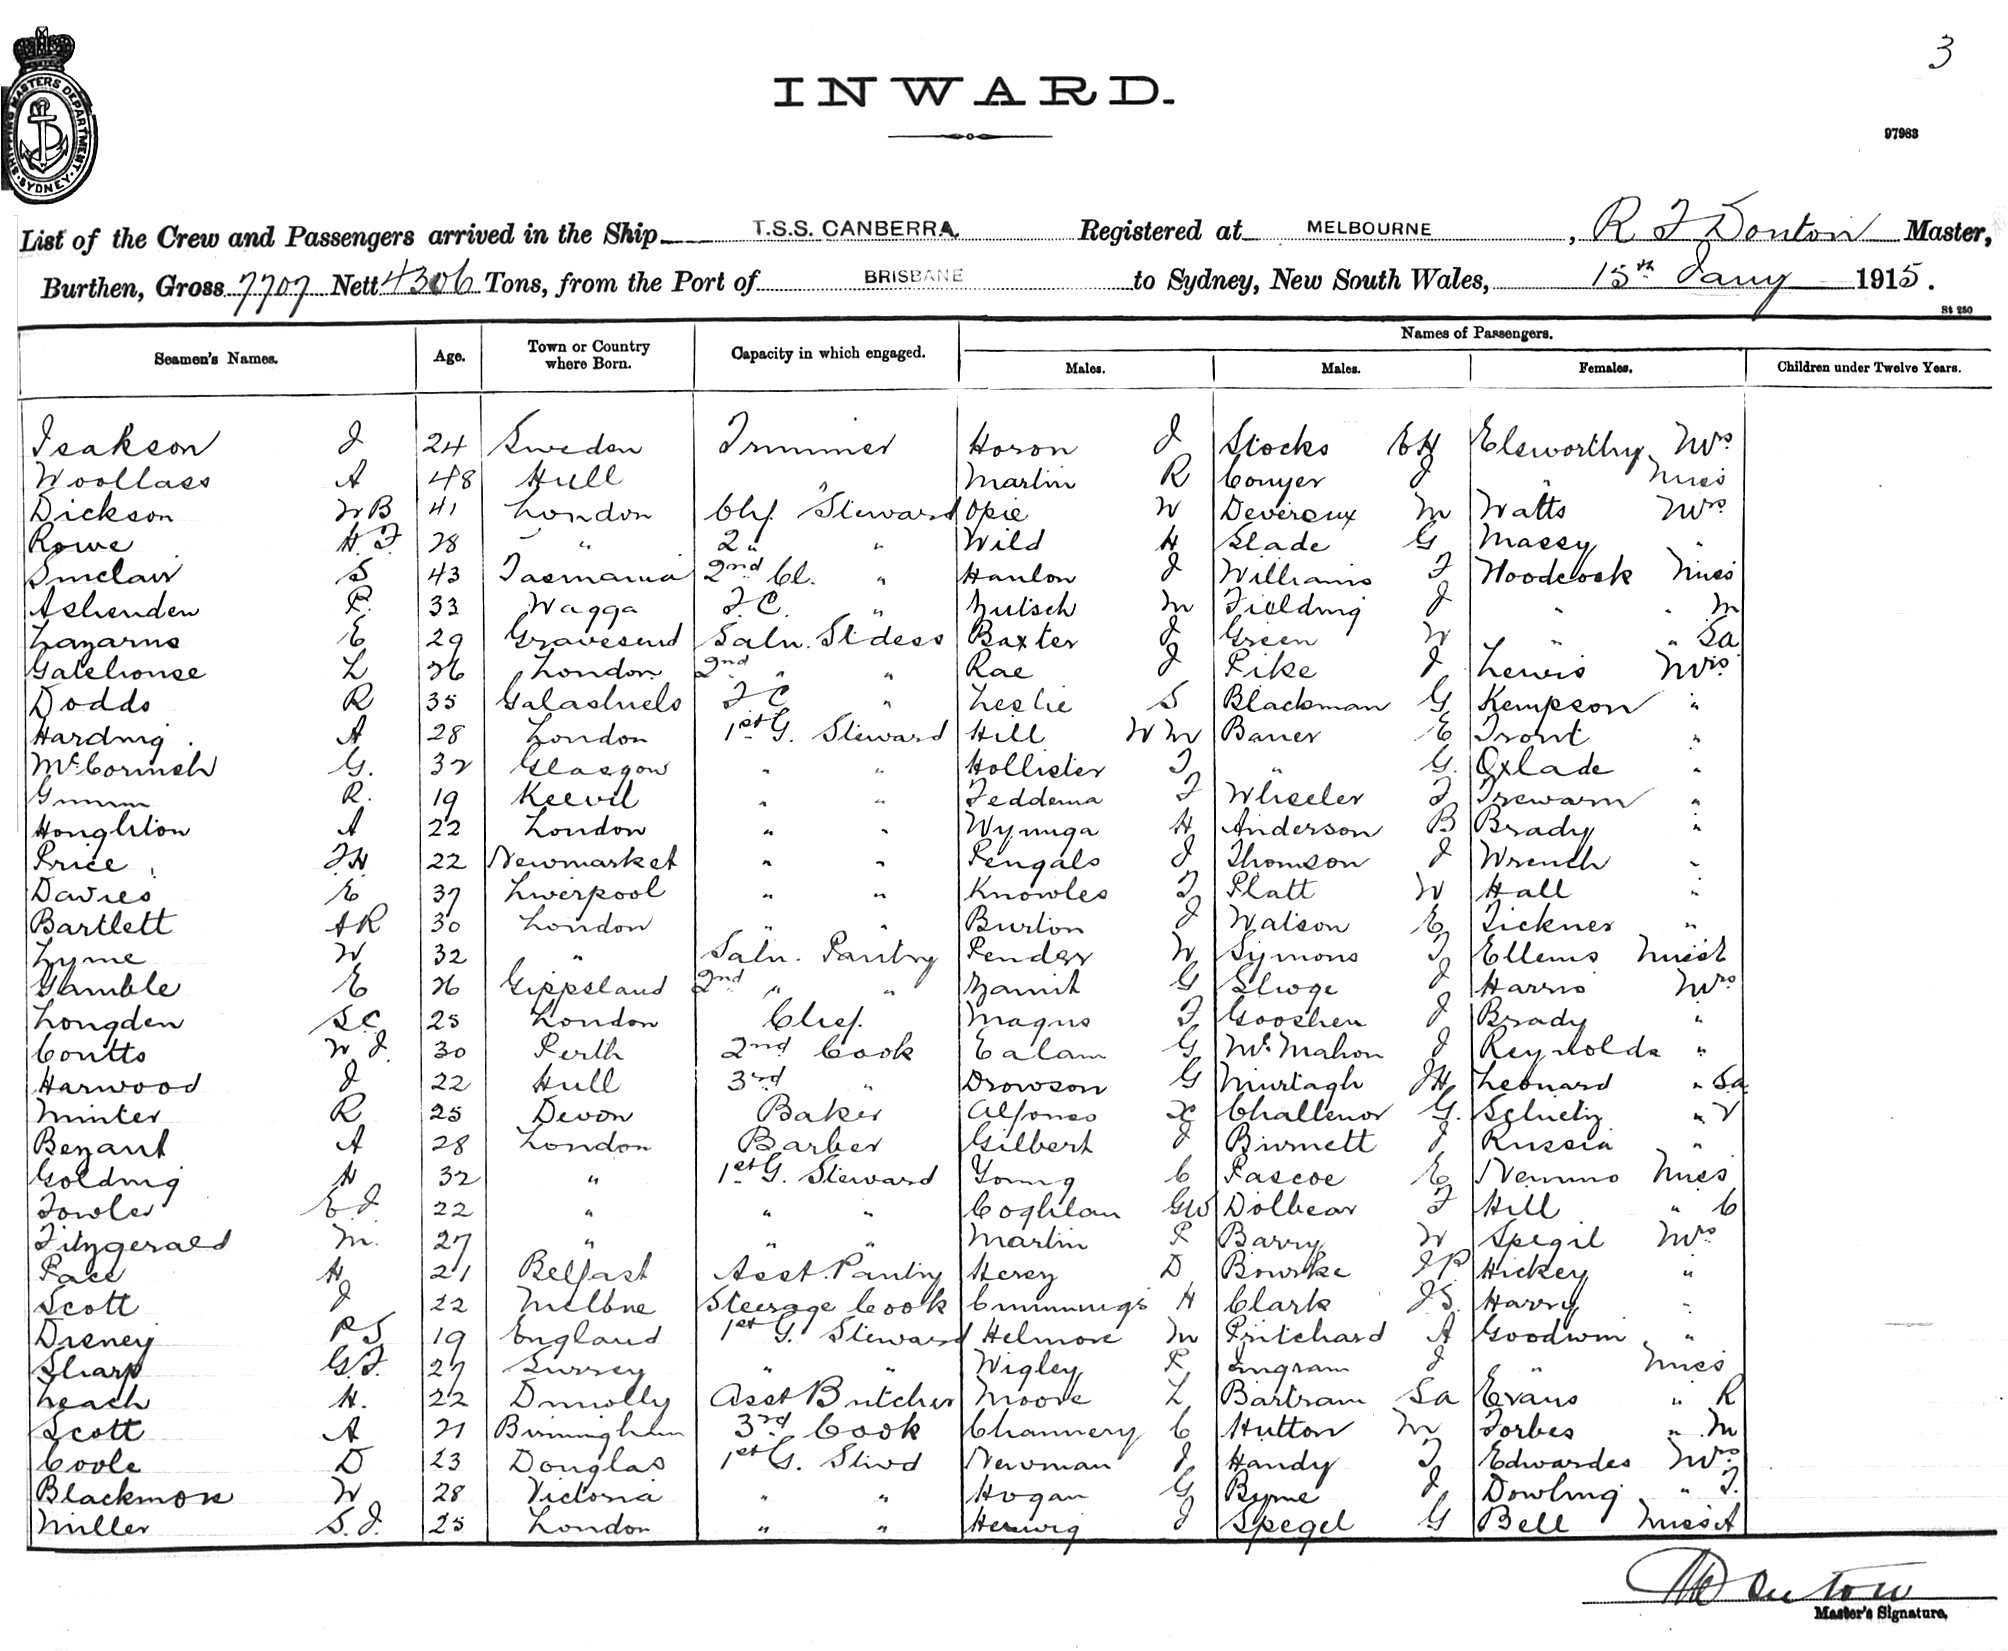 3
INWARD.
97983
SHIPPING MASTERS DEPARTMENT. SYDNEY.
List of the Crew and Passengers arrived in the Ship T.S.S. CANBERRA. Registered at MELBOURNE, R F Donton Master,
Burthen, Gross 7707 Nett 4306 Tons, from the Port of BRISBANE to Sydney, New South Wales, 15th Jany 1915.
St 250
Seamen's Names. Age. Town or Country where Born. Capacity in which engaged. Names of Passengers.
Males. Males. Females. Children under Twelve Years.
Isakson J 24 Sweden Trimmer Horon J Stocks EH Elsworthy Mrs
Woollass A 48 Hull " Martin R Conyer J " Miss
Dickson WB 41 London Chf. Steward Opie W Devereux M Watts Mrs
Rowe H.F 28 " 2 " " Wild H Slade G Massey "
Sinclair S 43 Tasmania 2nd Cl. " Hanlon J Williams F Woodcock Miss
Ashenden P. 33 Wagga F.C. " Zutsch M Fielding J " " M
Lazarus E 29 Gravesend Saln. Stdess Baxter J Green W " " Sa
Gatehouse L 26 London 2nd " " Rae J Pike J Lewis Mrs
Dodds R 35 Galashiels F C " Leslie S Blackman G Kempson "
Harding A 28 London 1st G. Steward Hill WM Bauer E Trout "
McCormish G. 32 Glasgow " " Hollister F " G. Oxlade "
Gunn R. 19 Keevil " " Feddema F Wheeler F Trewarn "
Houghton A 22 London " " Wynuga H Anderson B Brady "
Price FH 22 Newmarket " " Pengals J Thomson J Wrench "
Davies E 37 Liverpool " " Knowles F Platt W Hall "
Bartlett AR 30 London " " Burton J Watson E Tickner "
Lyme W 32 " Saln. Pantry Pender W Symons F Ellems Miss E
Gamble E 26 Gippsland 2nd " " Zamit G Sloge J Harris Mrs
Longden SC 25 London Chef. Magus F Gooshen J Brady "
Coutts W J 30 Perth 2nd Cook Ealam G McMahon J Reynolds "
Harwood J 22 Hull 3rd " Drowson G Murtagh JH Leonard " Sa
Minter R 25 Devon Baker Alfonso X Challenor G. Schuetz " V
Bezant A 28 London Barber Gilbert J Burnett J Russia "
Golding H 32 " 1st G. Steward Young C Pascoe E Nemmo Miss
Fowler E J 22 " " " Coghlan GW Dolbear F Hill " C
Fitzgerald M. 27 " " " Martin P Barry W Spegil Mrs
Pace H 21 Belfast Asst. Pantry Hersy D Bourke JP Hickey "
Scott J 22 Melbne Steerage Cook Cummings H Clark JS. Harry "
Disney PS 19 England 1st G. Steward Helmore M Pritchard A Goodwin "
Sharp G.F. 27 Surrey " " Wigley P Ingram J " Miss
Leach H. 22 Dunolly Asst Butcher Moore L Bartram Sa Evans " R
Scott A 21 Birmingham 3rd Cook Channery C Hutton M Forbes " M
Coole D 23 Douglas 1st G. Stwd Newman J Handy F Edwardes Mrs
Blackmore W 28 Victoria " " Hogan G Byrne J Dowling " F.
Miller S.J. 25 London " " Herwig J Spegel G Bell Miss A
Donton
Master's Signature.